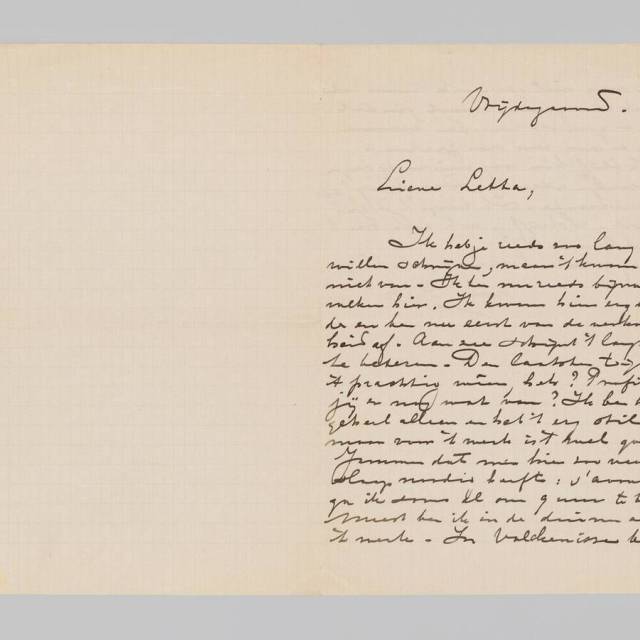 Vrijdagavond.
Lieve Letta,
Ik heb je reeds zoo lang
willen schrijven, maar 't kwam
niet van - Ik ben nu reeds bijna
weken hier. Ik kwam hier erg
de en ben nu eerst van de verkou
heid af. Aan zee schijnt 't lang
te beteren. De laatste tijd
't prachtig weer, hebt ? Profi
jij er nog wat van ? Ik ben
geheel alleen en heb 't erg stil
maar voor 't werk is 't heel
Jammer dat men hier zoo veel
slaap noodig heeft : s'avon
ga ik soms al om 9 uur
Meest ben ik in de duinen
't werk - In Valkenisse